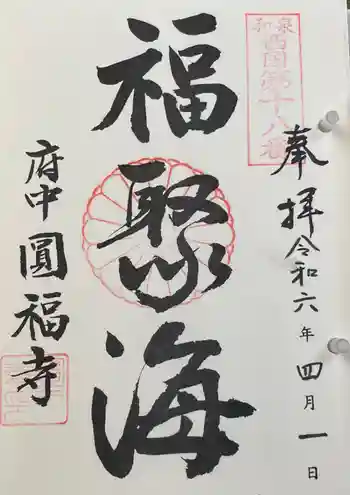 奉拝
令和六年四月一日
和泉
西国第十八番
福聚海
府中圓福寺